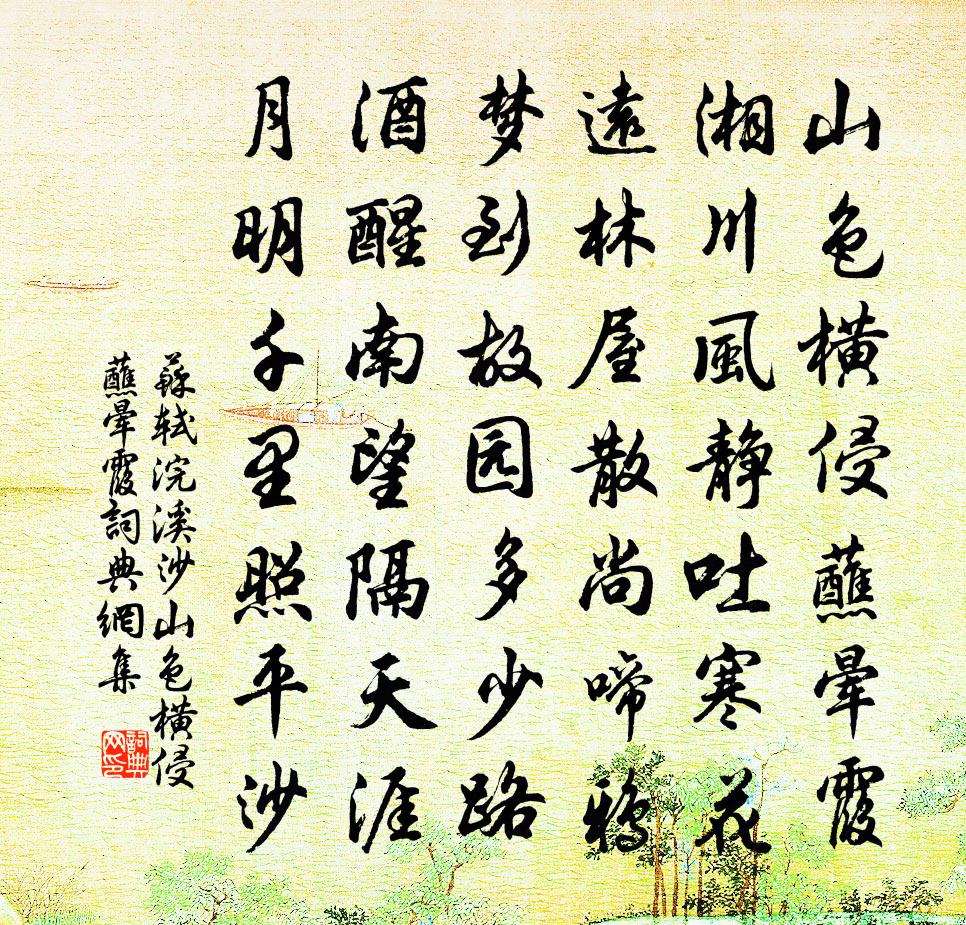 山色横侵蘸暈霞
湘川風静吐寒花
遠林屋散尚啼鴉
梦到故园多少路
酒醒南望隔天涯
月明千里照平沙
蘇軾浣溪沙山色横侵
蘸暈霞詞典網集
詞典
网印